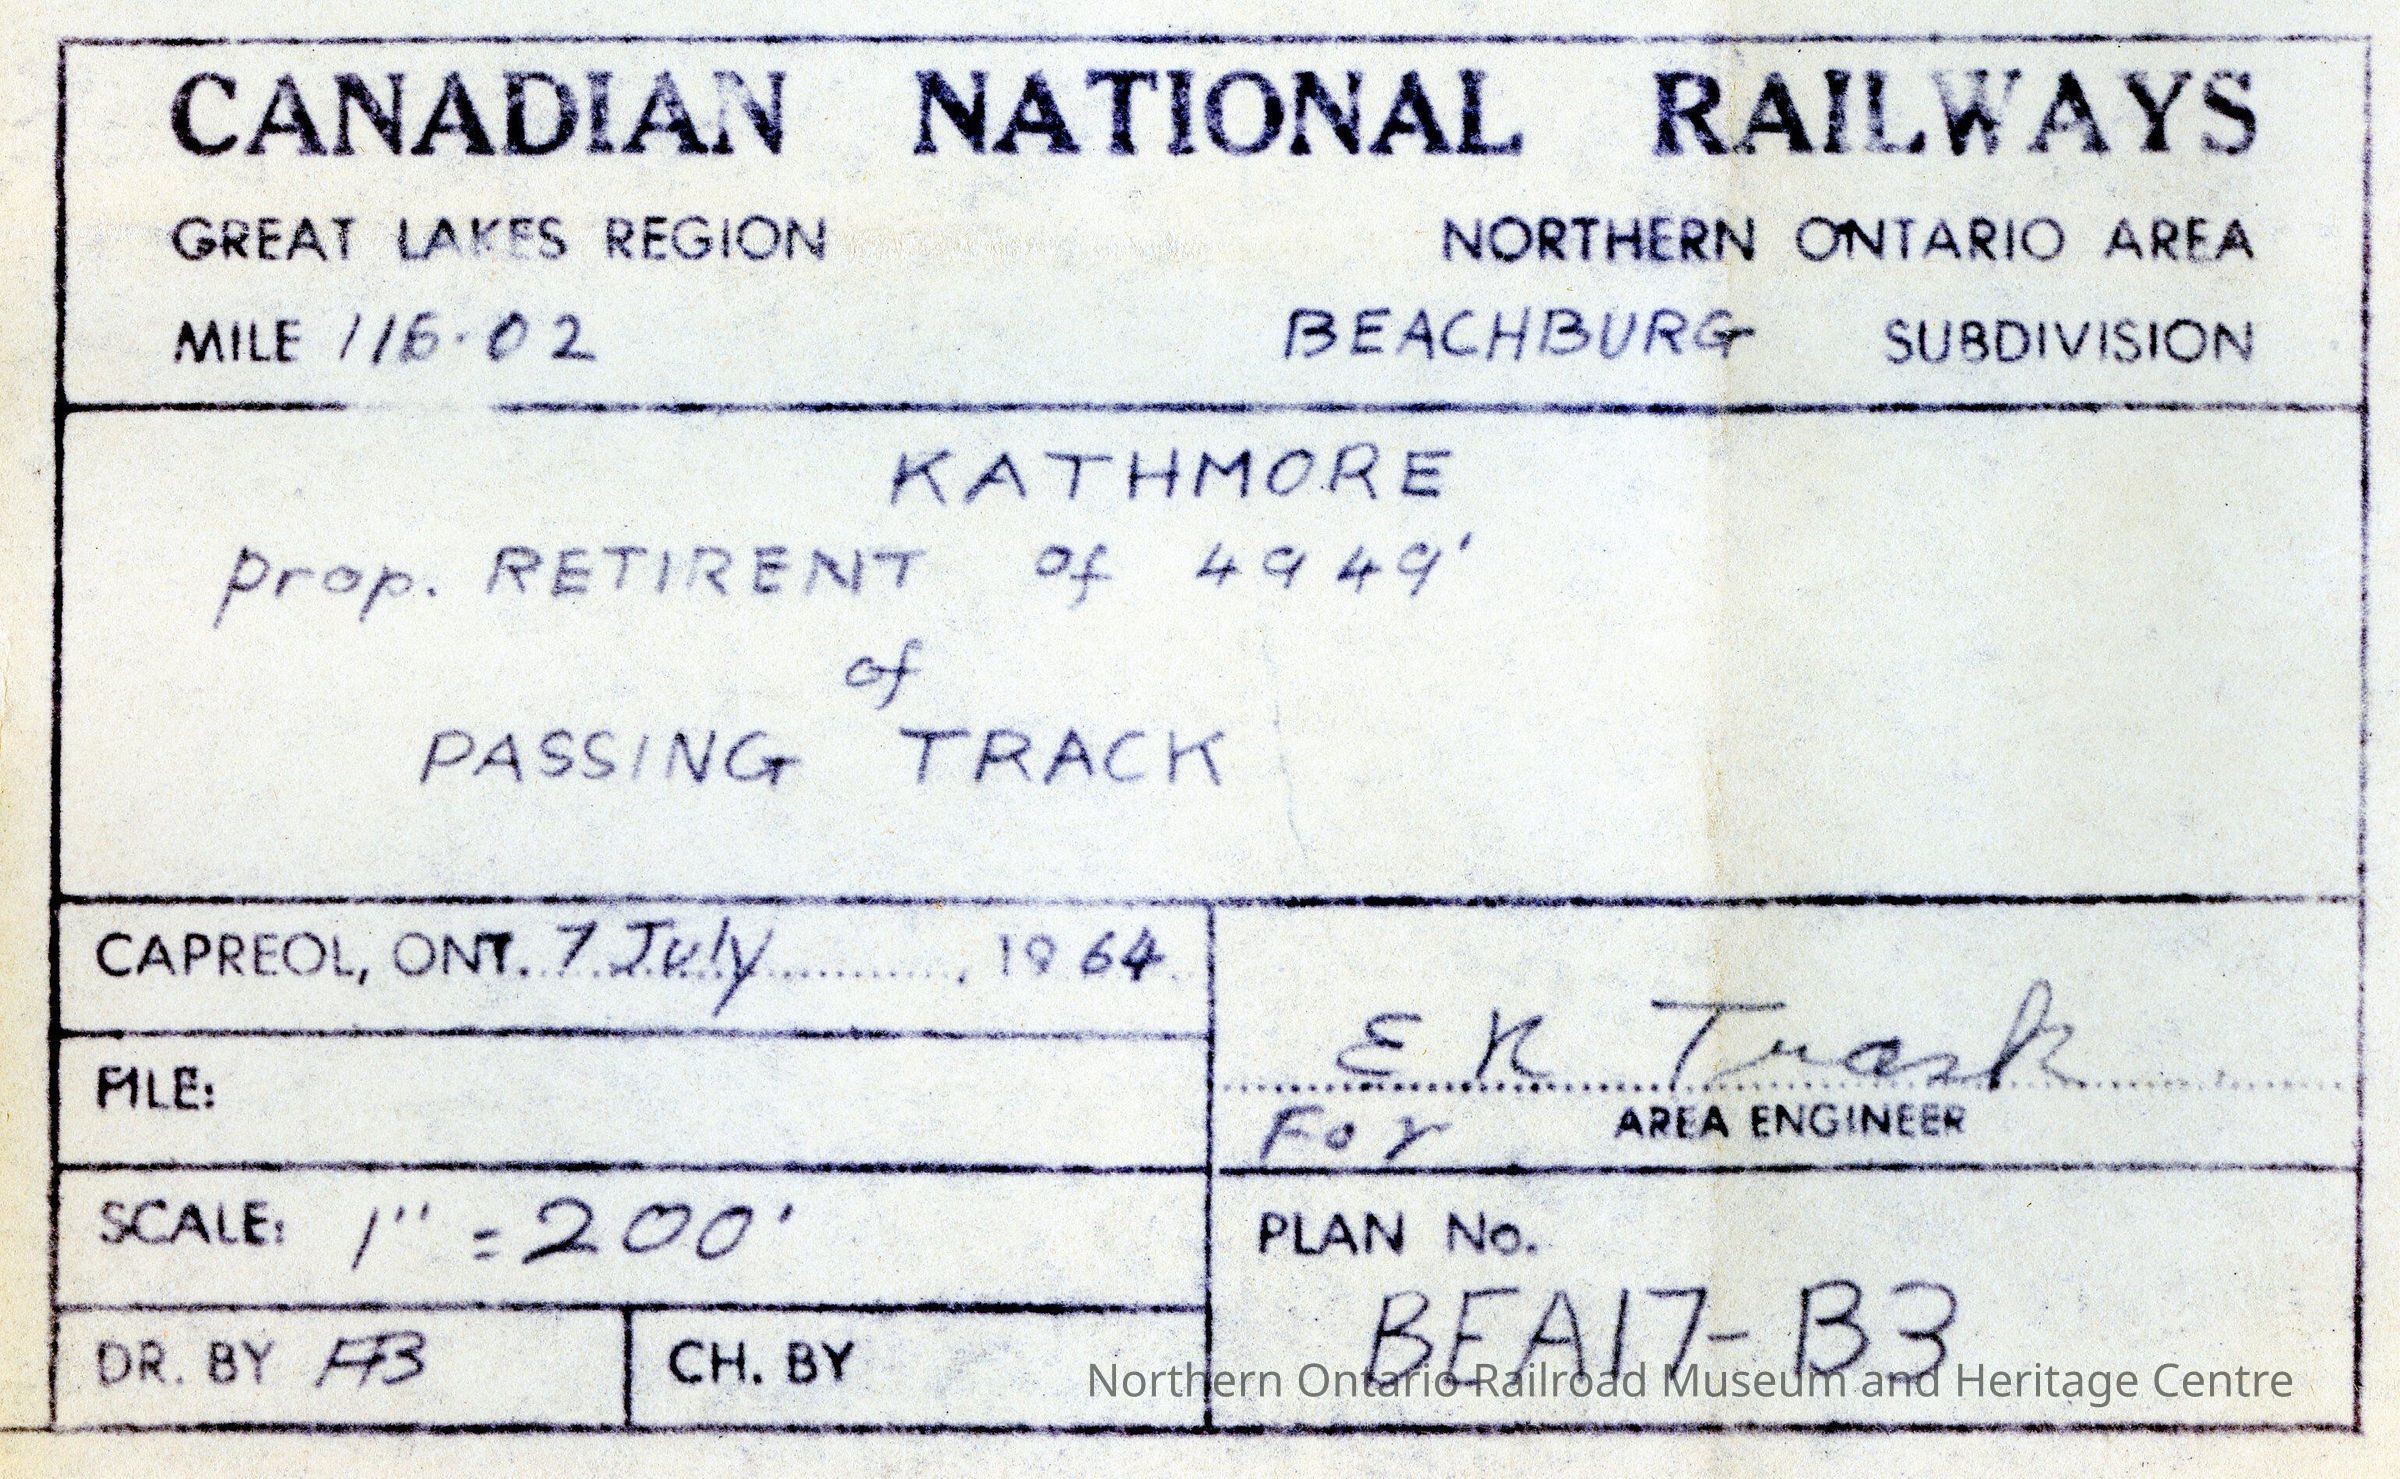 CANADIAN NATIONAL RAILWAYS
GREAT LAKES REGION NORTHERN ONTARIO AREA
MILE 116.02 BEACHBURG SUBDIVISION
KATHMORE
prop. RETIRENT of 4949'
of
PASSING TRACK
CAPREOL, ONT. 7 July, 1964
E K Trask
FILE:
For AREA ENGINEER
SCALE: 1" = 200'
PLAN No.
BEA17-B3
DR. BY CH. BY
Northern Ontario Railroad Museum and Heritage Centre